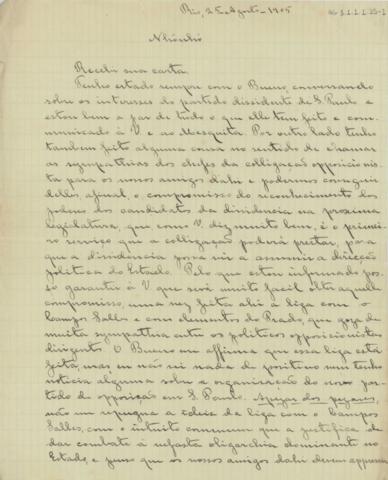 Rio, 25 Agosto_1905
Nhônhô
Recebi sua carta.
Tenho estado sempre com o Bueno, conversando
sobre os interesses do partido dissidente de S. Paulo e
estou bem a par de tudo o que elle tem feito e com-
municado à V. e ao Mesquita. Por outro lado tenho
tambem feito alguma cousa no sentido de chamar
as sympathias dos chefes da colligação opposicionis-
ta para os nossos amigos dahi e podermos conseguir
delles, afinal, o compromisso do reconhecimento dos
poderes dos candidatos da dissidencia na proxima
legislatura, que como V. diz muito bem, é o primei-
ro serviço que a colligação poderá prestar, para
que a dissidencia possa vir a assumir a direcção
politica do Estado. Pelo que estou informado pos-
so garantir à V que será muito facil obter aquelle
compromisso, uma vez feita ahi a liga com o
Campos Salles e com elementos do Prado, que goza de
muita sympathia entre os politicos opposicionistas
dirigentes. O Bueno me affirma que essa liga está
feita, mas eu não sei nada de positivo nem tenho
noticia alguma sobre a organisação do novo par-
tido de opposição em S. Paulo. Apezar dos pezares,
não me repugna a ideia da liga com o Campos
Salles, com o intuito commum que a justifica de
dar combate à nefasta oligarchia dominante no
Estado, e penso que os nossos amigos dahi devem